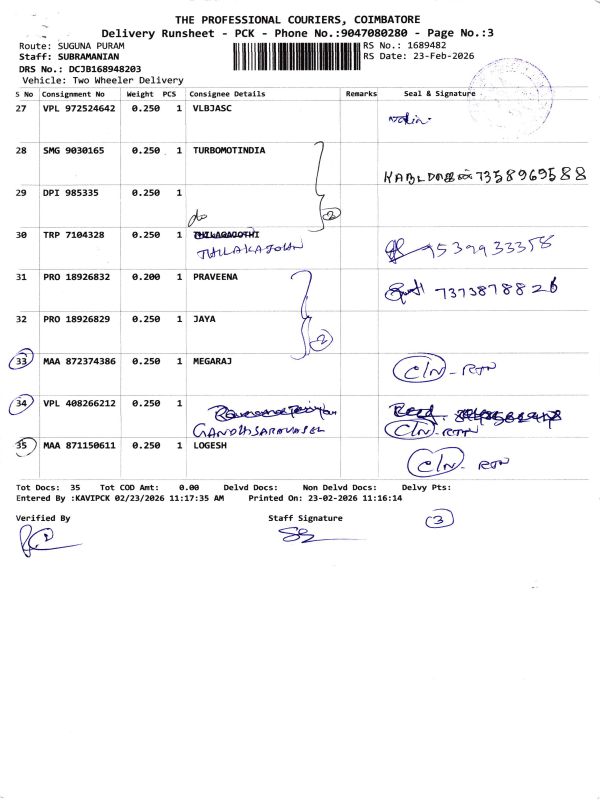 THE PROFESSIONAL COURIERS, COIMBATORE
Delivery Runsheet - PCK - Phone No.:9047080280 - Page No.:3
Route: SUGUNA PURAM
RS No.: 1689482
Staff: SUBRAMANIAN
RS Date: 23-Feb-2026
DRS No.: DCJB168948203
Vehicle: Two Wheeler Delivery
S No Consignment No Weight PCS Consignee Details Remarks Seal & Signature
27 VPL 972524642 0.250 1 VLBJASC
28 SMG 9030165 0.250 1 TURBOMOTINDIA
7358969588
29 DPI 985335 0.250 1
do 2
30 TRP 7104328 0.250 1 THILAGAJOTHI
THILAKAJOTHI 9539933358
31 PRO 18926832 0.200 1 PRAVEENA
7373878826
32 PRO 18926829 0.250 1 JAYA
2
33 MAA 872374386 0.250 1 MEGARAJ C/N - RTN
34 VPL 408266212 0.250 1
GANDHISARAVASEL C/N - RTN
35 MAA 871150611 0.250 1 LOGESH C/N - RTN
Tot Docs: 35 Tot COD Amt: 0.00 Delvd Docs: Non Delvd Docs: Delvy Pts:
Entered By :KAVIPCK 02/23/2026 11:17:35 AM Printed On: 23-02-2026 11:16:14
Verified By Staff Signature 3